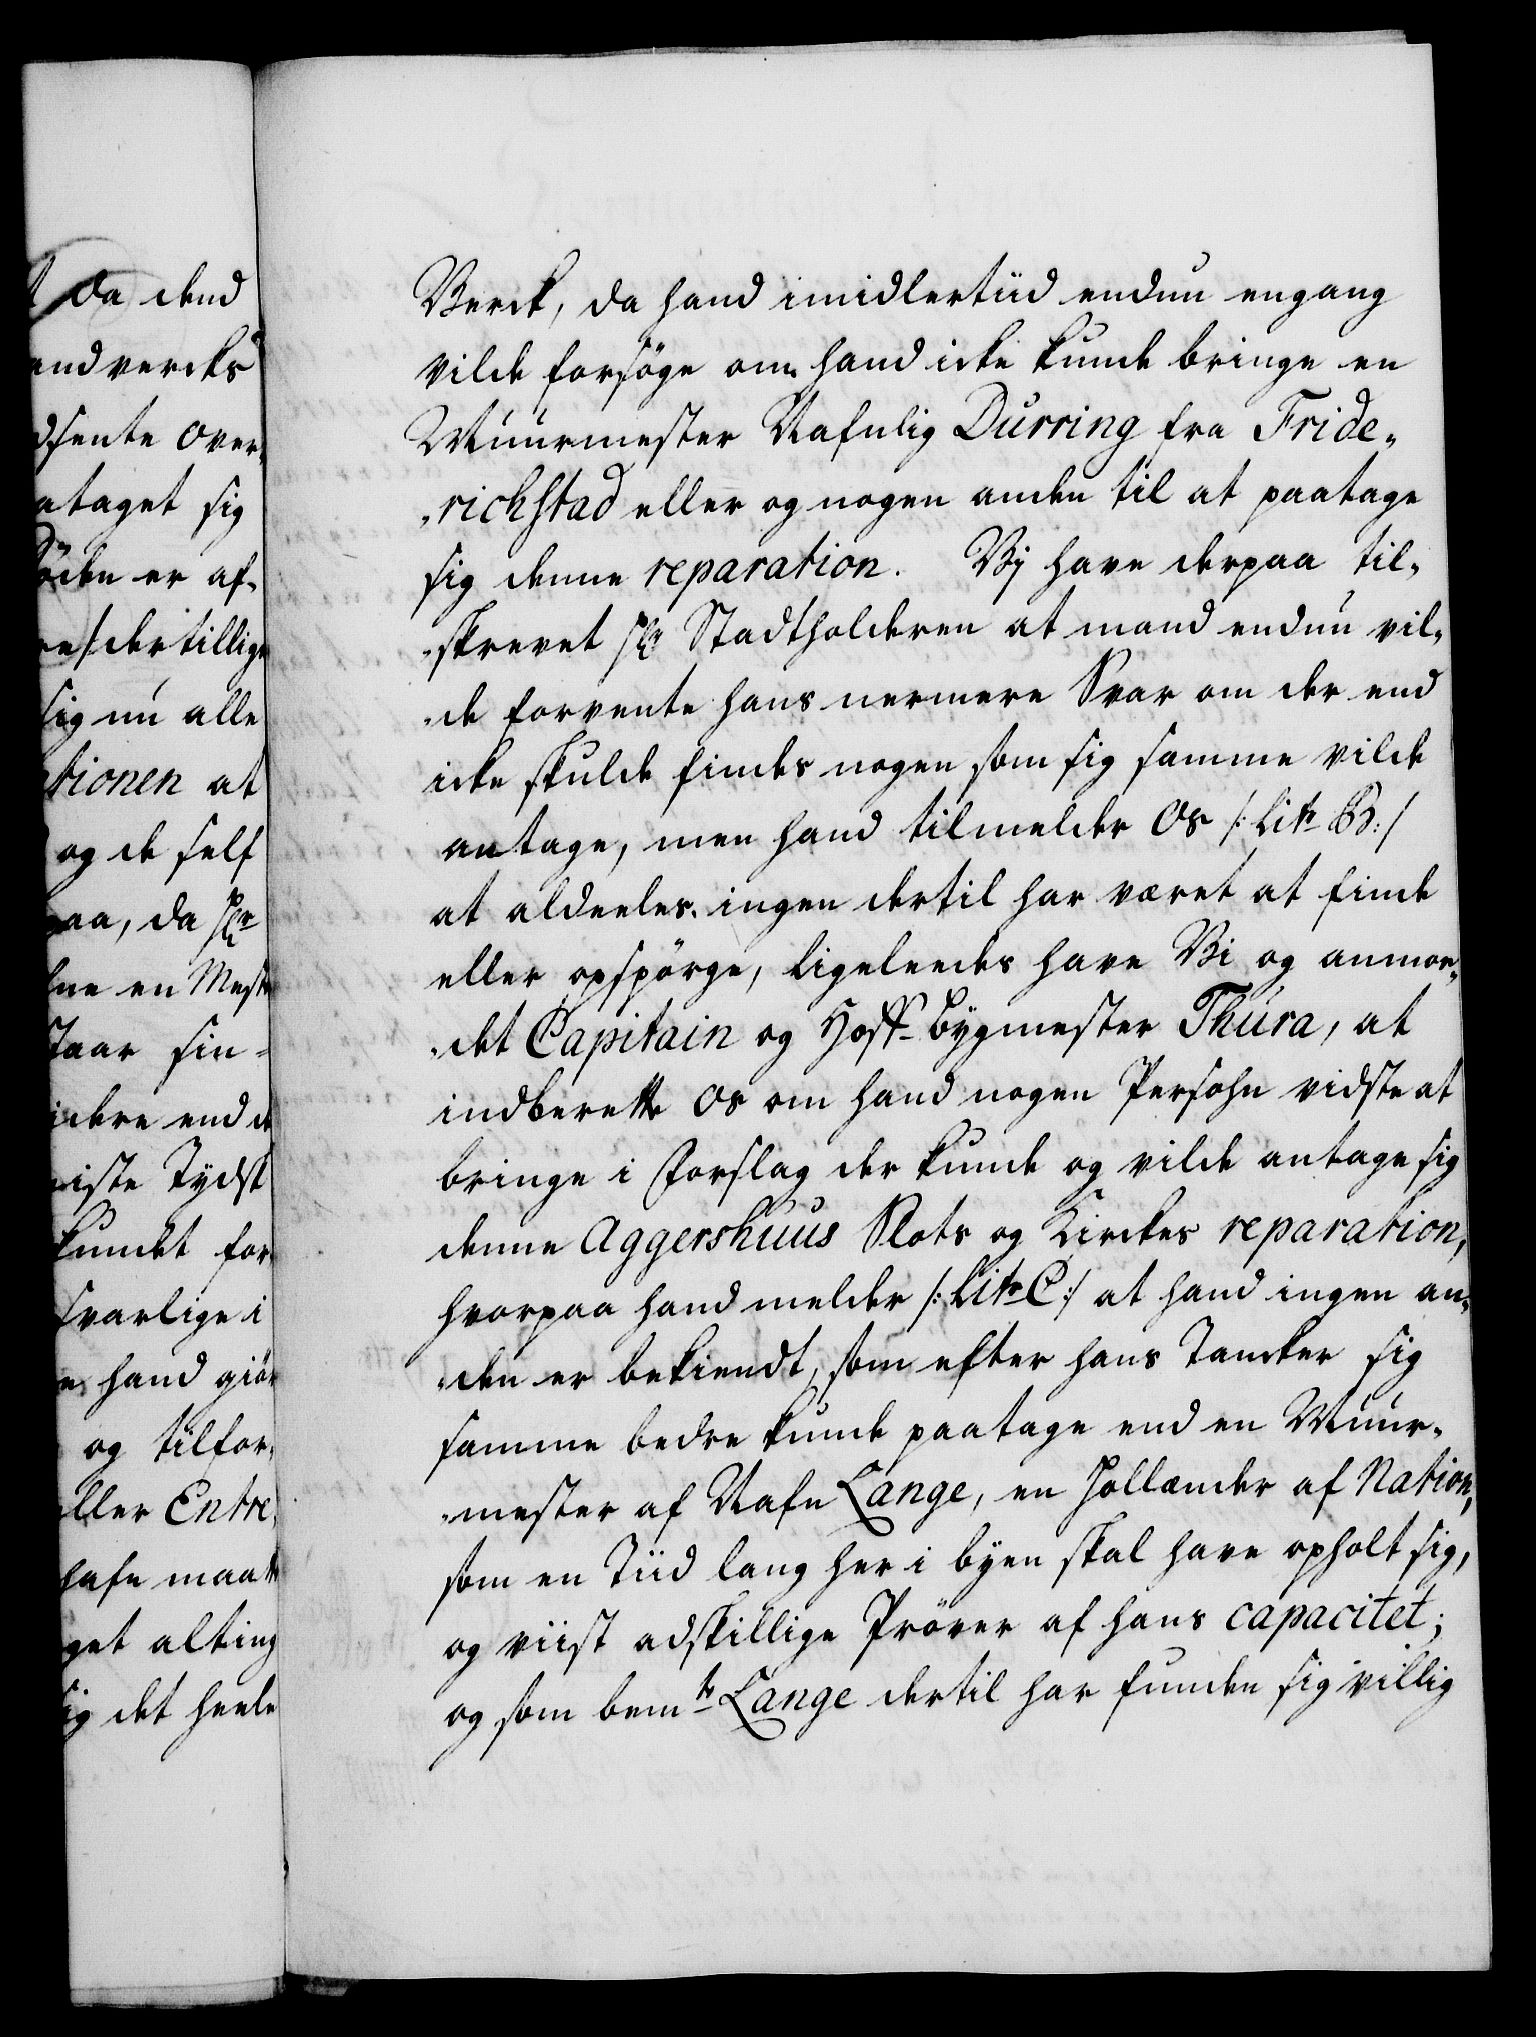 t da dend
andvercks
dsente over,
ataget sig
öden er af,
re/dertillige
sig nu alle
tionen at
og de self
paa, da Hr
ne en Mest
staar sin=
idere end d
iste Tydsk
kundet for,
svarlige i
hand giör
og tilfor,
ller Entre,
hafn maat
get alting
sig det heele
Verck, da hand imidlertiid endnu engang
vilde forsöge om hand icke kunde bringe en
Muurmester Nafnlig Durring fra Fride„
„richstad eller og nogen anden til at paatage
sig denne reparation. Vÿ have derpaa til„
„skrevet Hr Stadtholderen at mand endnu vil„
„de forvente hans nermere Svar om der end
icke skulde findes nogen som sig samme vilde
antage, men hand tilmelder os /: Litr B: /
at aldeeles ingen dertil har været at finde
eller opspörge, ligeleedes have Vi og anmo„
„det Capitain og Hoff-bÿgmester Thura, at
indberette os om hand nogen Persohn vidste at
bringe i Forslag der kunde og vilde antage sig
denne Aggershuus Slots og Kirckes reparation,
hvorpaa hand melder /: Litr C:/ at hand ingen an„
„den er bekiendt, som efter hans Tancker sig
samme bedre kunde paatage end en Muur„
„mester af Nafn Lange, en Hollænder af Nation,
som en Tiid lang her i bÿen skal have opholt sig,
og viist adskillige Pröver af hans capacitet;
og som bemte Lange dertil har funden sig villig